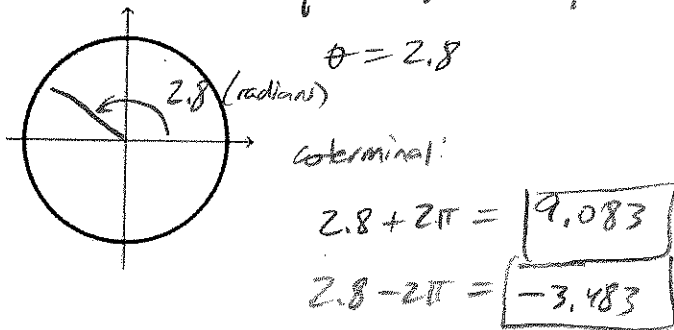 θ = 2.8
2.8 (radians)
coterminal:
2.8 + 2π = 9.083
2.8 - 2π = -3.483